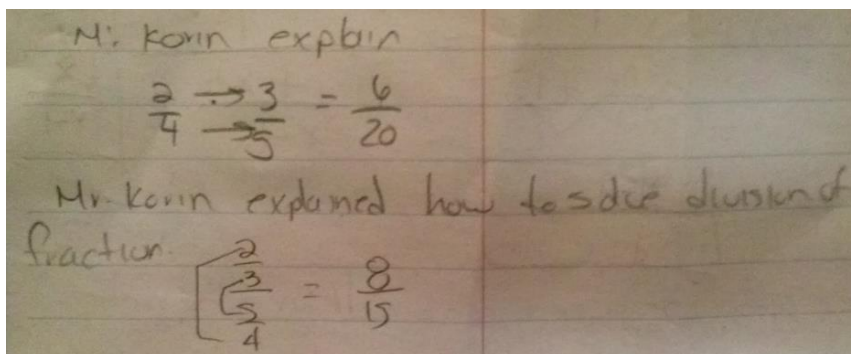 Mr. Korin explain
2/4 → 3/5 = 6/20
Mr. Korin explained how to solve division of
fraction.
2/3/5/4 = 8/15